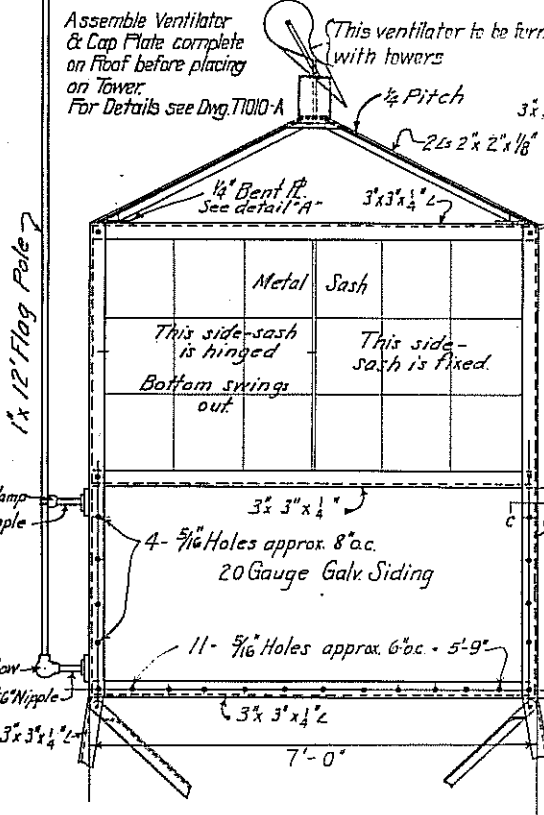 Assemble Ventilator
& Cap Plate complete
on Roof before placing
on Tower.
For Details see Dwg. T1010-A
This ventilator to be furn
with towers
1/4 Pitch
3"x
2Ls 2"x 2"x 1/8"
1/4" Bent Pl.
See detail "A"
3"x3"x1/4" L
1"x 12' Flag Pole
Metal Sash
This side-sash
is hinged
Bottom swings
out.
This side-
sash is fixed.
amp
pple
3"x 3"x 1/4"
c
4- 5/16" Holes approx. 8"o.c.
20 Gauge Galv. Siding
11- 5/16" Holes approx. 6"o.c. - 5'-9"
ow
6" Nipple
3"x3"x1/4" L
3"x 3"x 1/4" L
7'-0"